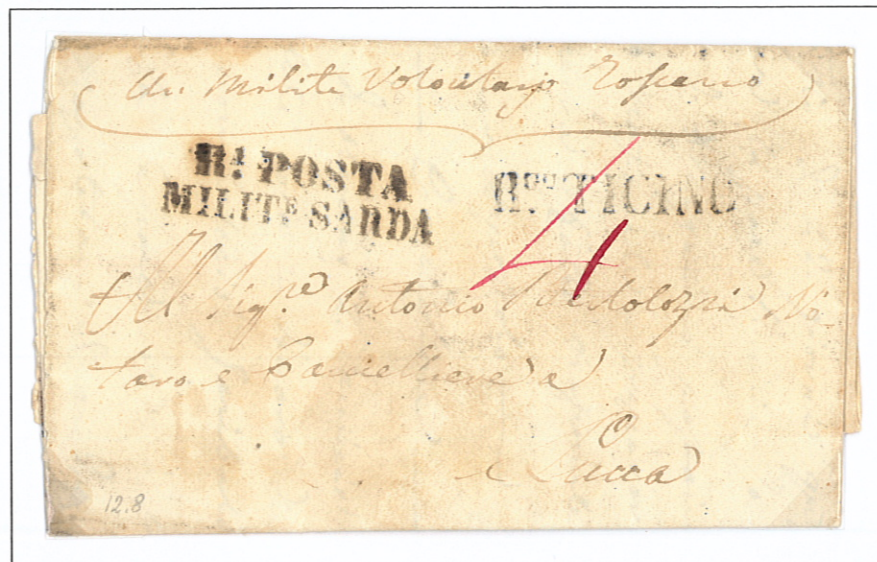 Un Milite Volontario Toscano
Rᵃ. POSTA
MILITᴱ SARDA
TICINO
4
Al Sigʳᵉ Antonio Bertolozzi No-
taro e Cancelliere a
Lucca
12.8